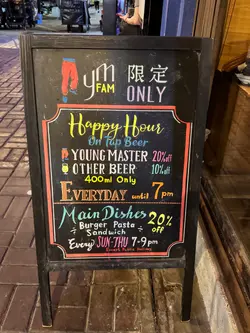 ym 限定
FAM ONLY
Happy Hour
On Tap Beer
YOUNG MASTER 20% off
OTHER BEER 10% off
400ml Only
EVERYDAY until 7pm
Main Dishes
Burger Pasta
Sandwich
20%
off
Every SUN-THU 7-9pm